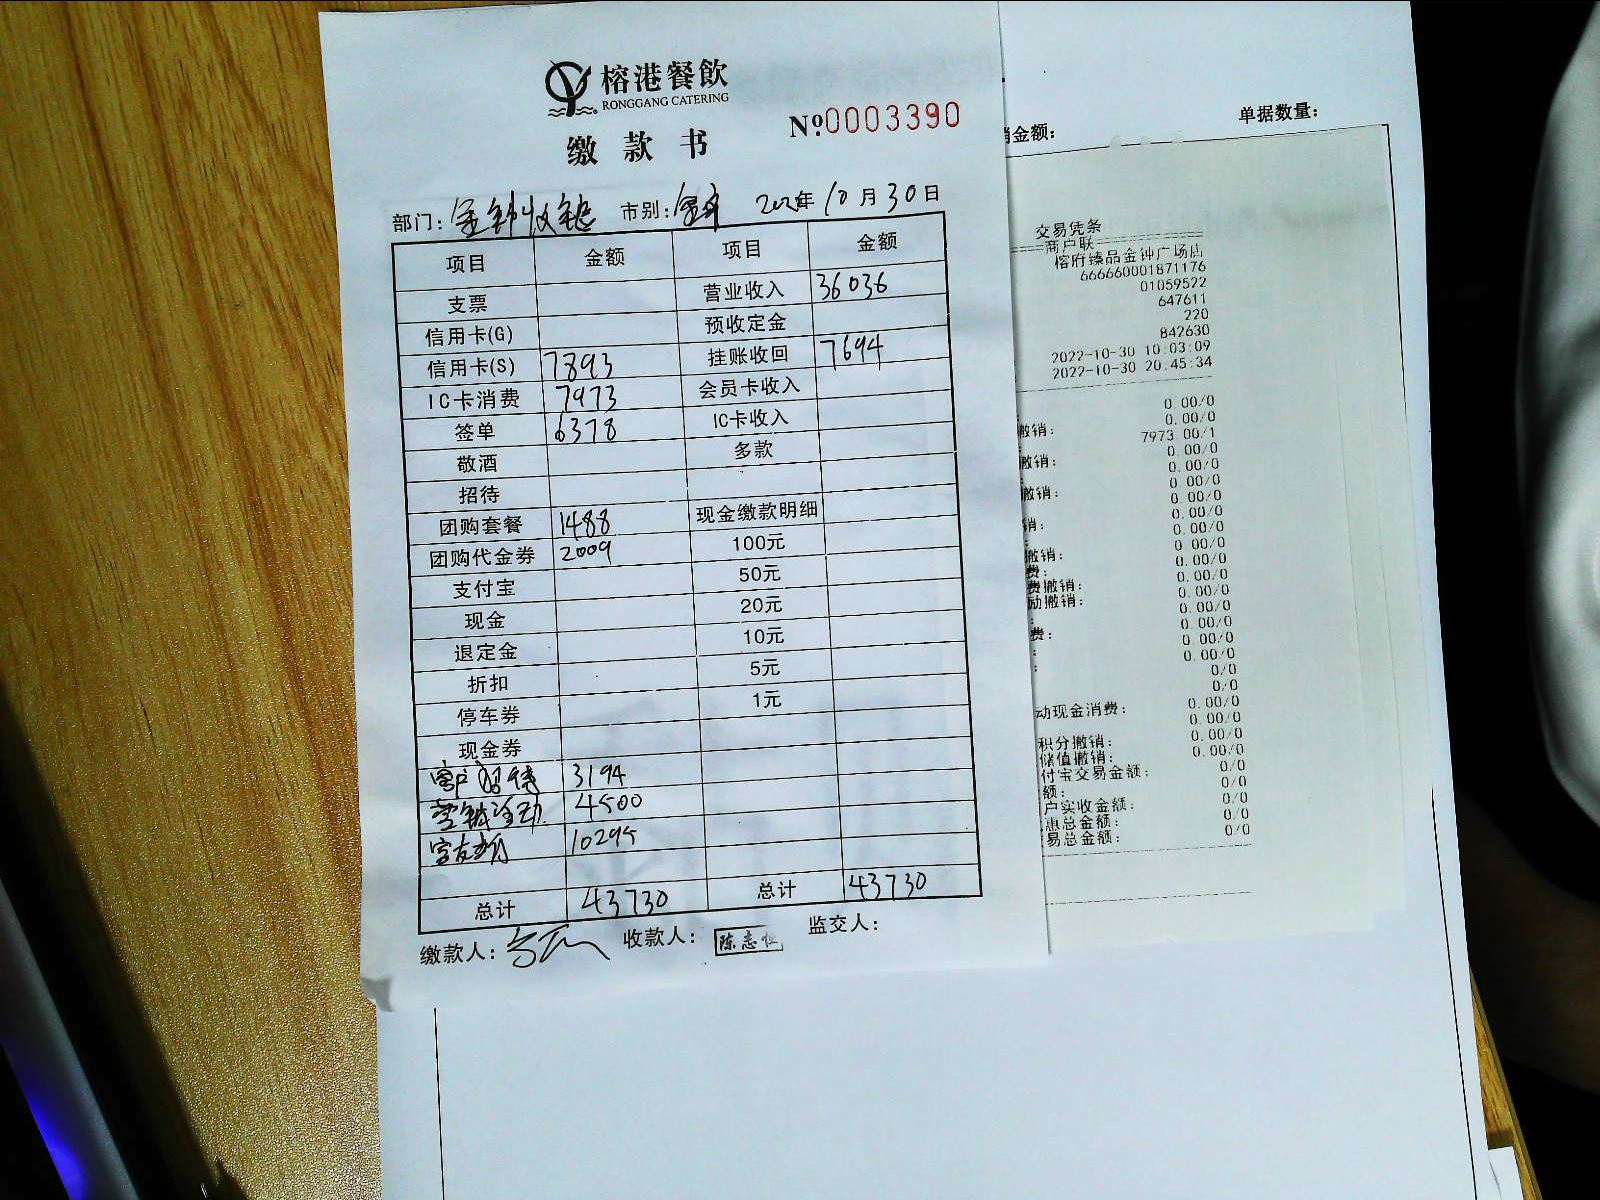 榕港餐飲
RONGGANG CATERING
缴款书 №0003390
部门：金钟收银 市别： 2022年10月30日
项目 金额 项目 金额
支票 营业收入 36036
信用卡(G) 预收定金
信用卡(S) 7893 挂账收回 7694
IC卡消费 7973 会员卡收入
签单 6378 IC卡收入
敬酒 多款
招待
团购套餐 1488 现金缴款明细
团购代金券 2009 100元
支付宝 50元
现金 20元
退定金 10元
折扣 5元
停车券 1元
现金券
客户招待 3194
营销活动 4500
10295
总计 43730 总计 43730
缴款人： 收款人：陈志恒 监交人：
金额： 单据数量：
交易凭条
商户联
榕府臻品金钟广场店
666660001871176
01059522
647611
220
842630
2022-10-30 10:03:09
2022-10-30 20:45:34
0.00/0
0.00/0
撤销： 7973.00/1
0.00/0
撤销： 0.00/0
0.00/0
撤销： 0.00/0
0.00/0
销： 0.00/0
0.00/0
撤销： 0.00/0
费： 0.00/0
费撤销： 0.00/0
励撤销： 0.00/0
0.00/0
费： 0.00/0
0.00/0
0/0
0/0
动现金消费： 0.00/0
0.00/0
积分撤销： 0.00/0
储值撤销： 0.00/0
付宝交易金额： 0/0
额： 0/0
户实收金额： 0/0
惠总金额： 0/0
易总金额： 0/0